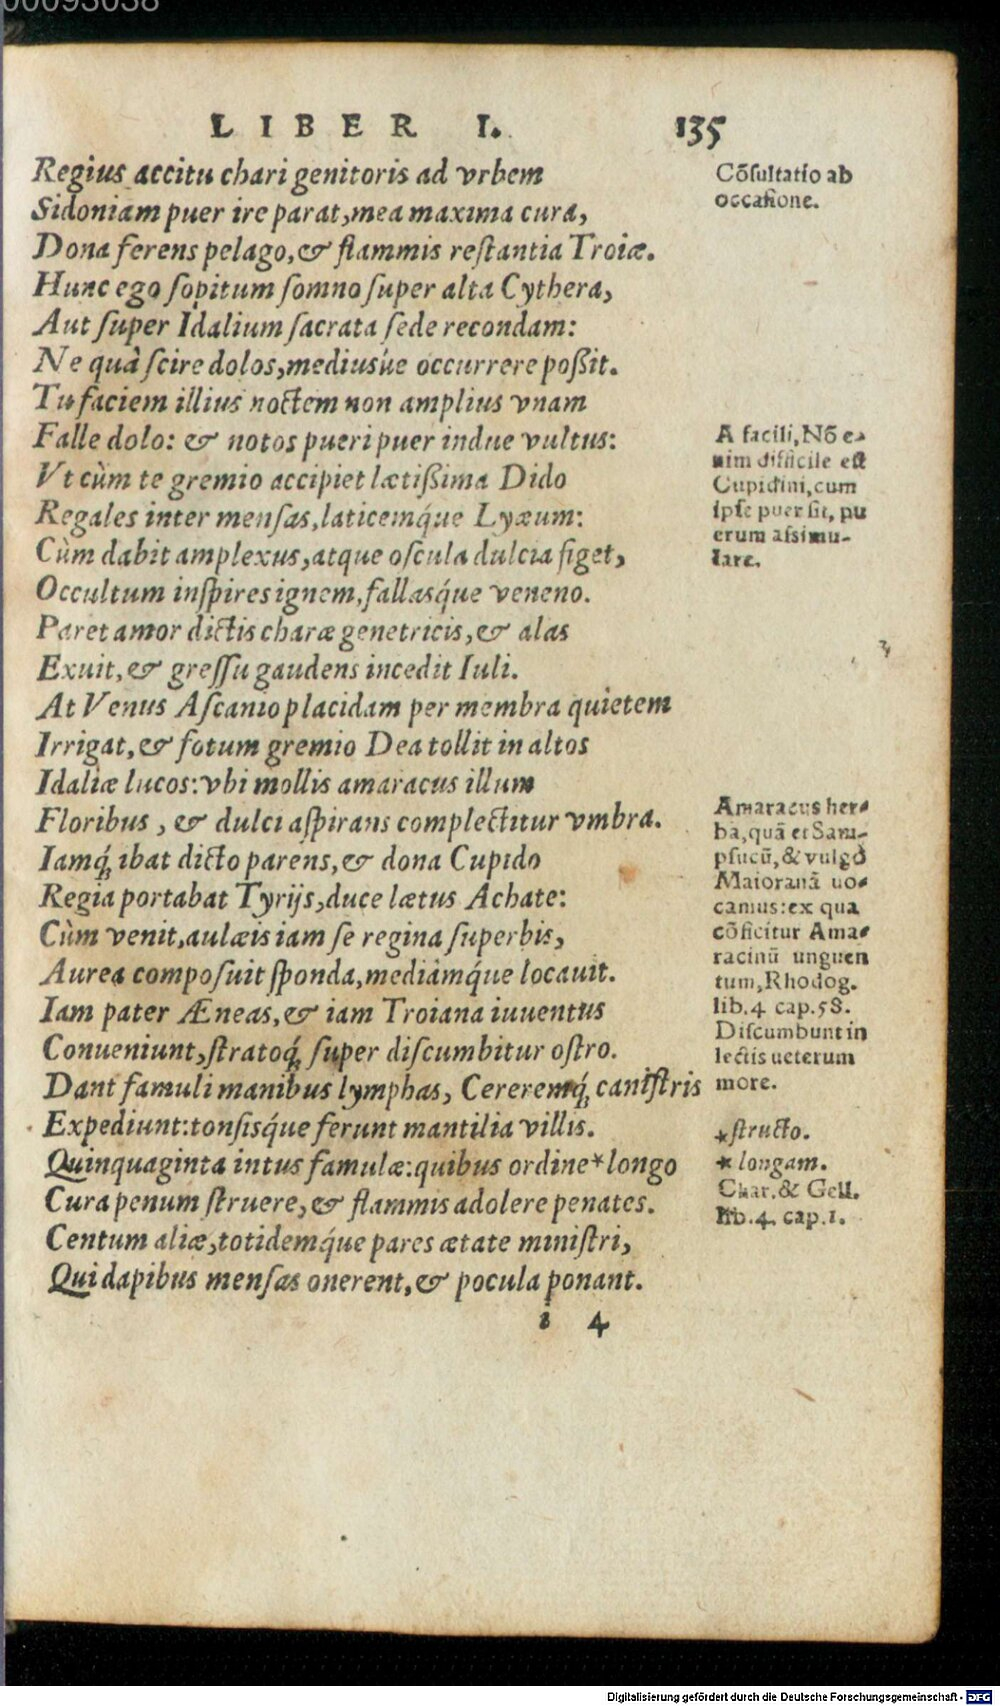 00093038
LIBER I. 135
Regius accitu chari genitoris ad vrbem
Sidoniam puer ire parat, mea maxima cura,
Dona ferens pelago, & flammis reſtantia Troiæ.
Hunc ego ſopitum ſomno ſuper alta Cythera,
Aut ſuper Idalium ſacrata ſede recondam:
Ne quà ſcire dolos, mediusúe occurrere poßit.
Tu faciem illius noctem non amplius vnam
Falle dolo: & notos pueri puer indue vultus:
Vt cùm te gremio accipiet lætißima Dido
Regales inter menſas, laticemq́ue Lyæum:
Cùm dabit amplexus, atque oſcula dulcia figet,
Occultum inſpires ignem, fallasq́ue veneno.
Paret amor dictis charæ genetricis, & alas
Exuit, & greſſu gaudens incedit Iuli.
At Venus Aſcanio placidam per membra quietem
Irrigat, & fotum gremio Dea tollit in altos
Idaliæ lucos: vbi mollis amaracus illum
Floribus, & dulci aſpirans complectitur vmbra.
Iamq́; ibat dicto parens, & dona Cupido
Regia portabat Tyrijs, duce lætus Achate:
Cùm venit, aulæis iam ſe regina ſuperbis,
Aurea compoſuit ſponda, mediamq́ue locauit.
Iam pater Æneas, & iam Troiana iuuentus
Conueniunt, ſtratoq́; ſuper diſcumbitur oſtro.
Dant famuli manibus lymphas, Cereremq́; caniſtris
Expediunt: tonſisq́ue ferunt mantilia villis.
Quinquaginta intus famulæ: quibus ordine * longo
Cura penum ſtruere, & flammis adolere penates.
Centum aliæ, totidemq́ue pares ætate miniſtri,
Qui dapibus menſas onerent, & pocula ponant.
i 4
Cõſultatio ab
occaſione.
A facili, Nõ e-
nim difficile eſt
Cupidini, cum
ipſe puer ſit, pu
erum aſsimu-
lare.
Amaracus her-
ba, quã et Sam-
pſucũ, & vulgò
Maioranã uo-
camus: ex qua
cõficitur Ama-
racinũ unguen
tum, Rhodog.
lib. 4 cap. 58.
Diſcumbunt in
lectis ueterum
more.
* ſtructo.
* longam.
Char. & Gell.
lib. 4. cap. 1.
Digitalisierung gefördert durch die Deutsche Forschungsgemeinschaft - DFG